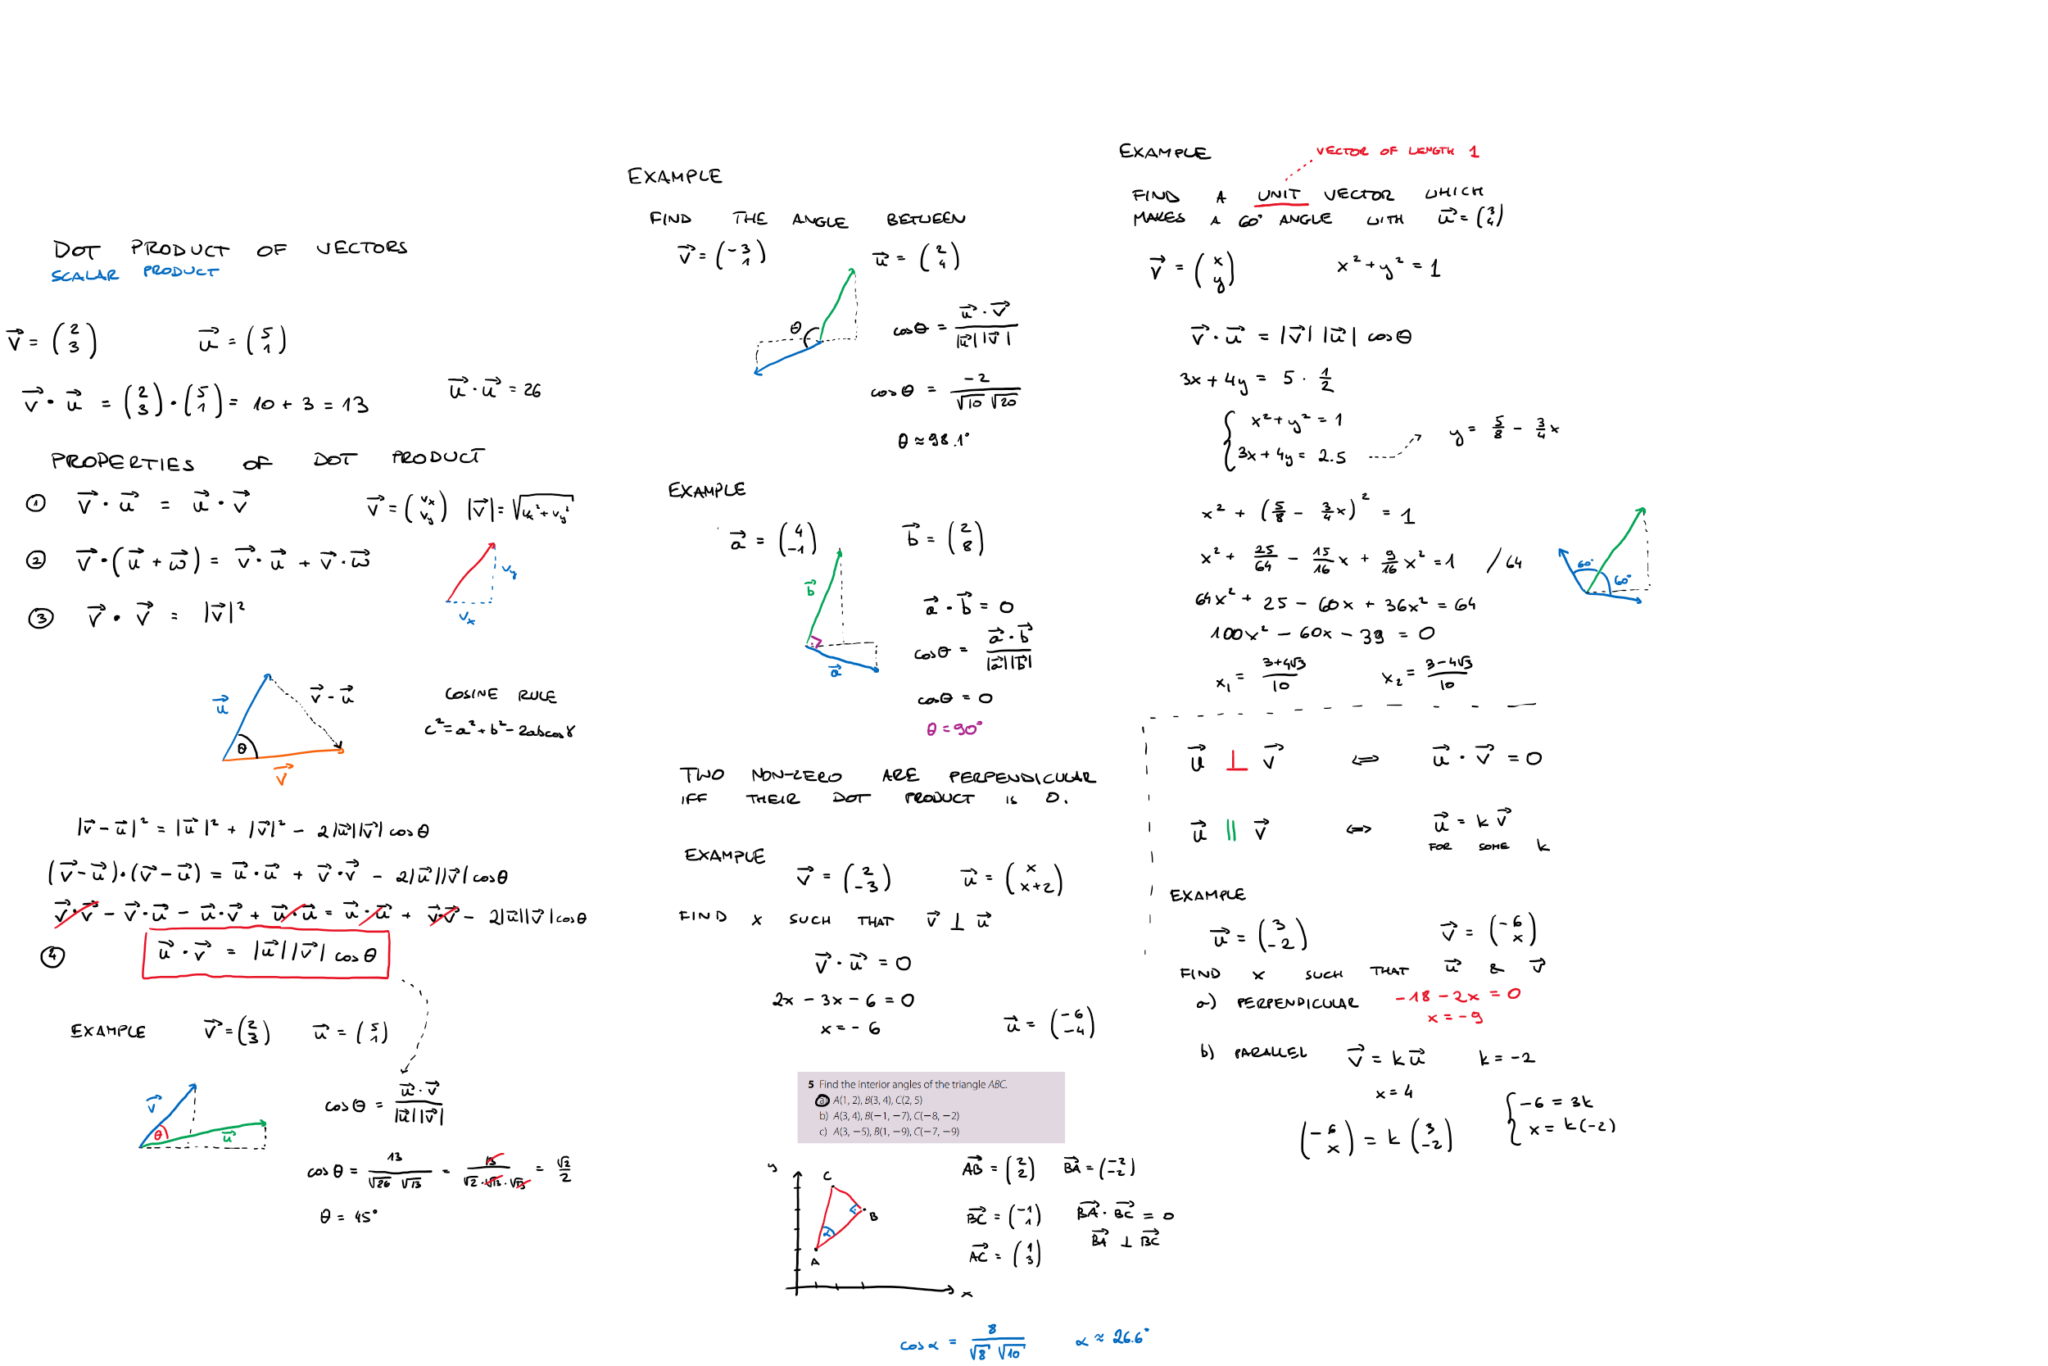 DOT PRODUCT OF VECTORS
SCALAR PRODUCT
v⃗ = (2 3) u⃗ = (5 1)
v⃗ · u⃗ = (2 3) · (5 1) = 10 + 3 = 13 u⃗ · u⃗ = 26
PROPERTIES OF DOT PRODUCT
① v⃗ · u⃗ = u⃗ · v⃗ v⃗ = (vx vy) |v⃗| = √(vx² + vy²)
② v⃗ · (u⃗ + w⃗) = v⃗ · u⃗ + v⃗ · w⃗
vy
③ v⃗ · v⃗ = |v⃗|²
vx
u⃗ v⃗ - u⃗
θ
v⃗
COSINE RULE
c² = a² + b² - 2ab cos γ
|v⃗ - u⃗|² = |u⃗|² + |v⃗|² - 2|u⃗||v⃗| cos θ
(v⃗ - u⃗) · (v⃗ - u⃗) = u⃗ · u⃗ + v⃗ · v⃗ - 2|u⃗||v⃗| cos θ
v⃗ · v⃗ - v⃗ · u⃗ - u⃗ · v⃗ + u⃗ · u⃗ = u⃗ · u⃗ + v⃗ · v⃗ - 2|u⃗||v⃗| cos θ
④ u⃗ · v⃗ = |u⃗||v⃗| cos θ
EXAMPLE v⃗ = (2 3) u⃗ = (5 1)
v⃗ θ u⃗
cos θ = u⃗ · v⃗ / |u⃗||v⃗|
cos θ = 13 / √26 √13 = 13 / √2 · √13 · √13 = √2 / 2
θ = 45°
EXAMPLE
FIND THE ANGLE BETWEEN
v⃗ = (-3 1) u⃗ = (2 4)
θ
cos θ = u⃗ · v⃗ / |u⃗||v⃗|
cos θ = -2 / √10 √20
θ ≈ 98.1°
EXAMPLE
a⃗ = (4 -1) b⃗ = (2 8)
b⃗
a⃗
a⃗ · b⃗ = 0
cos θ = a⃗ · b⃗ / |a⃗||b⃗|
cos θ = 0
θ = 90°
TWO NON-ZERO ARE PERPENDICULAR
IFF THEIR DOT PRODUCT IS 0.
EXAMPLE
v⃗ = (2 -3) u⃗ = (x x+2)
FIND x SUCH THAT v⃗ ⊥ u⃗
v⃗ · u⃗ = 0
2x - 3x - 6 = 0
x = -6 u⃗ = (-6 -4)
5 Find the interior angles of the triangle ABC.
a) A(1, 2), B(3, 4), C(2, 5)
b) A(3, 4), B(−1, −7), C(−8, −2)
c) A(3, −5), B(1, −9), C(−7, −9)
y
C
B
α
A
x
AB⃗ = (2 2) BA⃗ = (-2 -2)
BC⃗ = (-1 1) BA⃗ · BC⃗ = 0
BA⃗ ⊥ BC⃗
AC⃗ = (1 3)
cos α = 8 / √8 √10 α ≈ 26.6°
EXAMPLE VECTOR OF LENGTH 1
FIND A UNIT VECTOR WHICH
MAKES A 60° ANGLE WITH u⃗ = (3 4)
v⃗ = (x y) x² + y² = 1
v⃗ · u⃗ = |v⃗| |u⃗| cos θ
3x + 4y = 5 · 1/2
{ x² + y² = 1
3x + 4y = 2.5 y = 5/8 - 3/4 x
x² + (5/8 - 3/4 x)² = 1
x² + 25/64 - 15/16 x + 9/16 x² = 1 / 64
64x² + 25 - 60x + 36x² = 64
100x² - 60x - 39 = 0
x₁ = 3+4√3 / 10 x₂ = 3-4√3 / 10
60° 60°
u⃗ ⊥ v⃗ ⇔ u⃗ · v⃗ = 0
u⃗ || v⃗ ⇔ u⃗ = k v⃗
FOR SOME k
EXAMPLE
u⃗ = (3 -2) v⃗ = (-6 x)
FIND x SUCH THAT u⃗ & v⃗
a) PERPENDICULAR -18 - 2x = 0
x = -9
b) PARALLEL v⃗ = k u⃗ k = -2
x = 4
(-6 x) = k (3 -2) { -6 = 3k
x = k(-2)